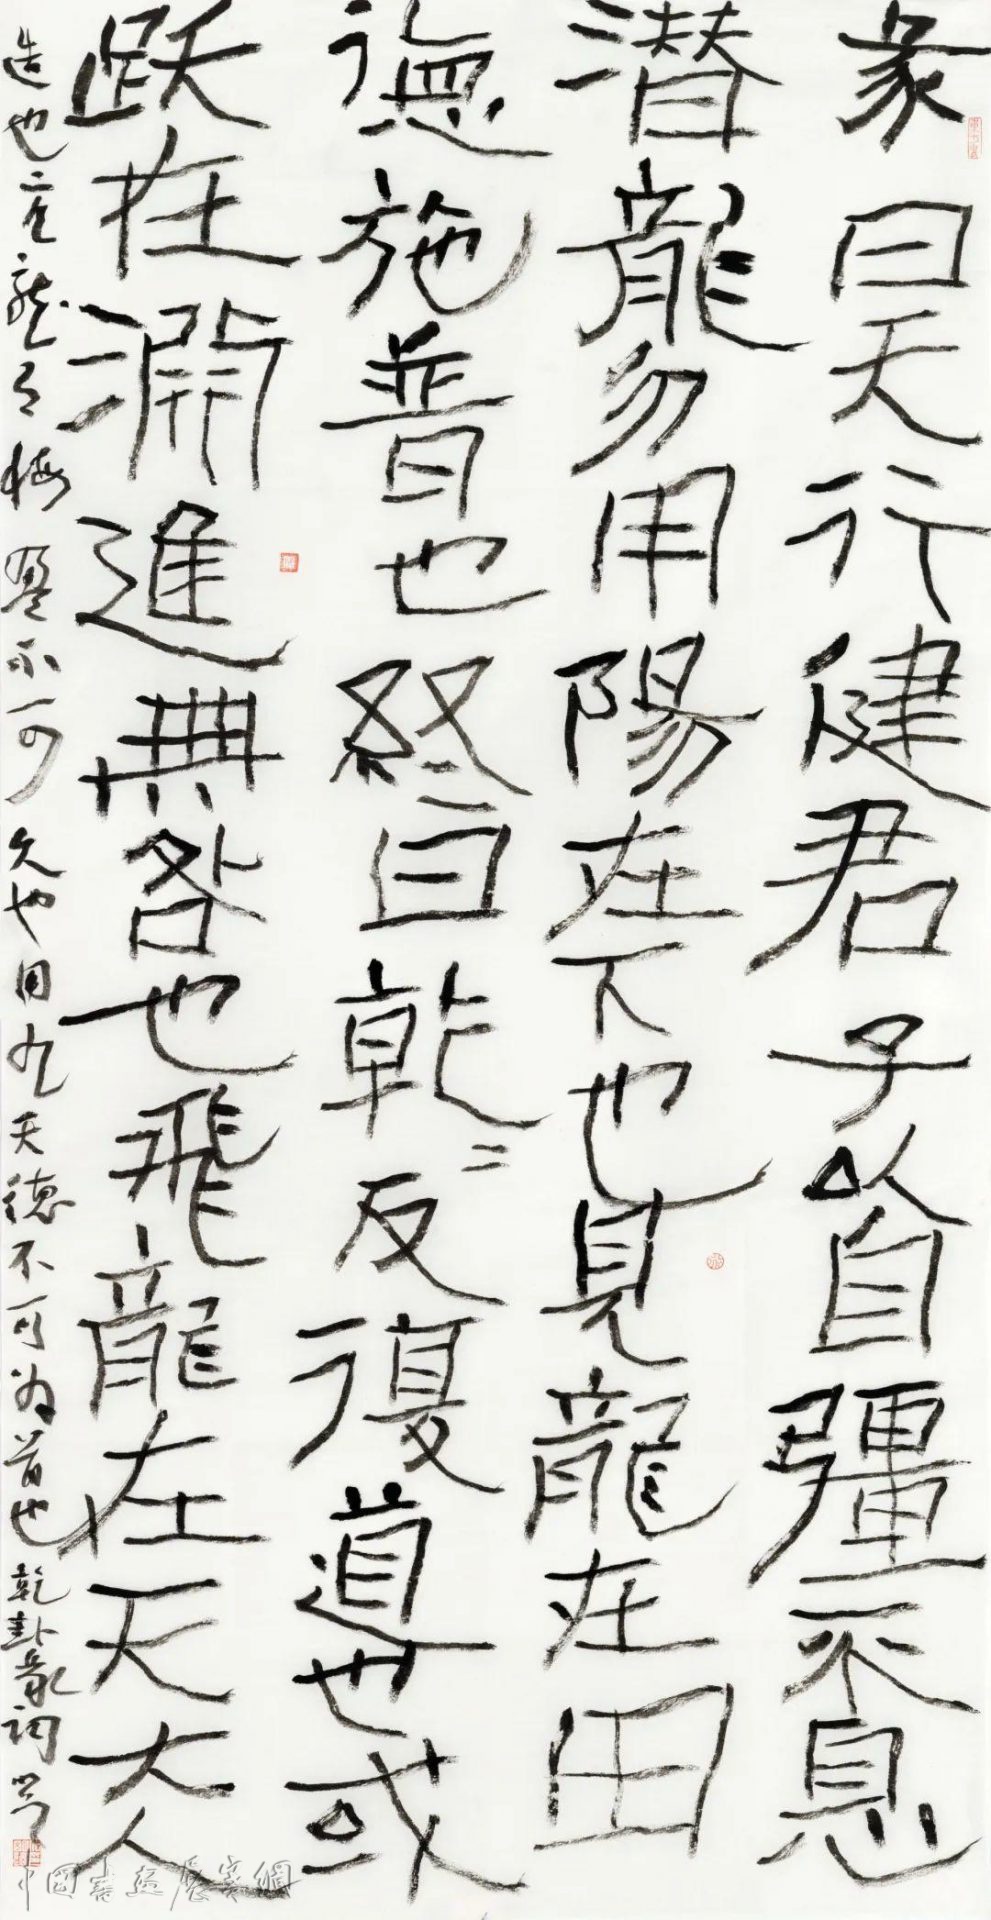 彖曰天行健君子以自彊不息
潜龍勿用陽在下也見龍在田
德施普也終日乾〻反復道也或
跃在淵進無咎也飛龍在天大人
造也亢龍有悔盈不可久也用九天德不可为首也 乾卦彖词
中國書画展賽網